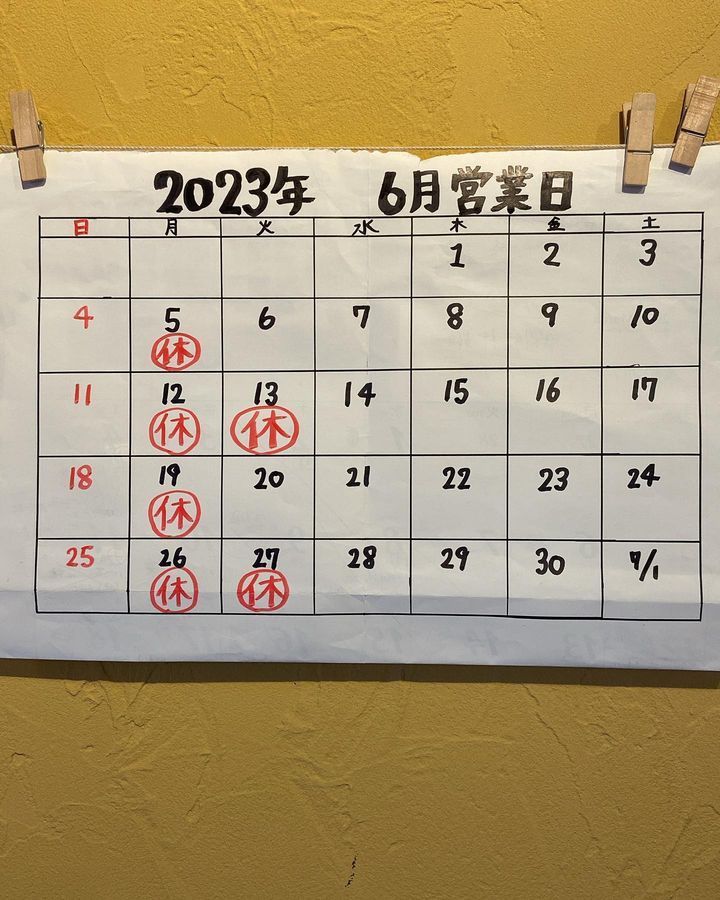 2023年 6月営業日
日 月 火 水 木 金 土
1 2 3
4 5 6 7 8 9 10
休
11 12 13 14 15 16 17
休 休
18 19 20 21 22 23 24
休
25 26 27 28 29 30 7/1
休 休